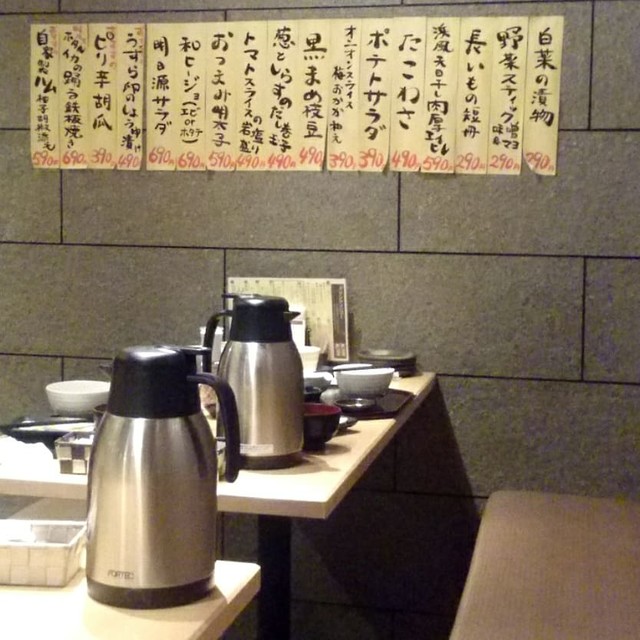 白菜の漬物 290円
野菜スティック 味噌マヨ 290円
長いもの短冊 290円
浜風天日干し肉厚エビ 590円
たこわさ 490円
ポテトサラダ 390円
オニオンスライス 梅おかか和え 390円
黒まめ枝豆 490円
葱としらすのだし巻き玉子 490円
トマトスライスの岩塩盛り 490円
おつまみ明太子 590円
和ヒージョ(エビorホタテ) 690円
開源サラダ 690円
うずら卵のしょうゆ漬け 490円
ピリ辛胡瓜 390円
ホタルイカの踊り鉄板焼き 690円
自家製ハム 590円